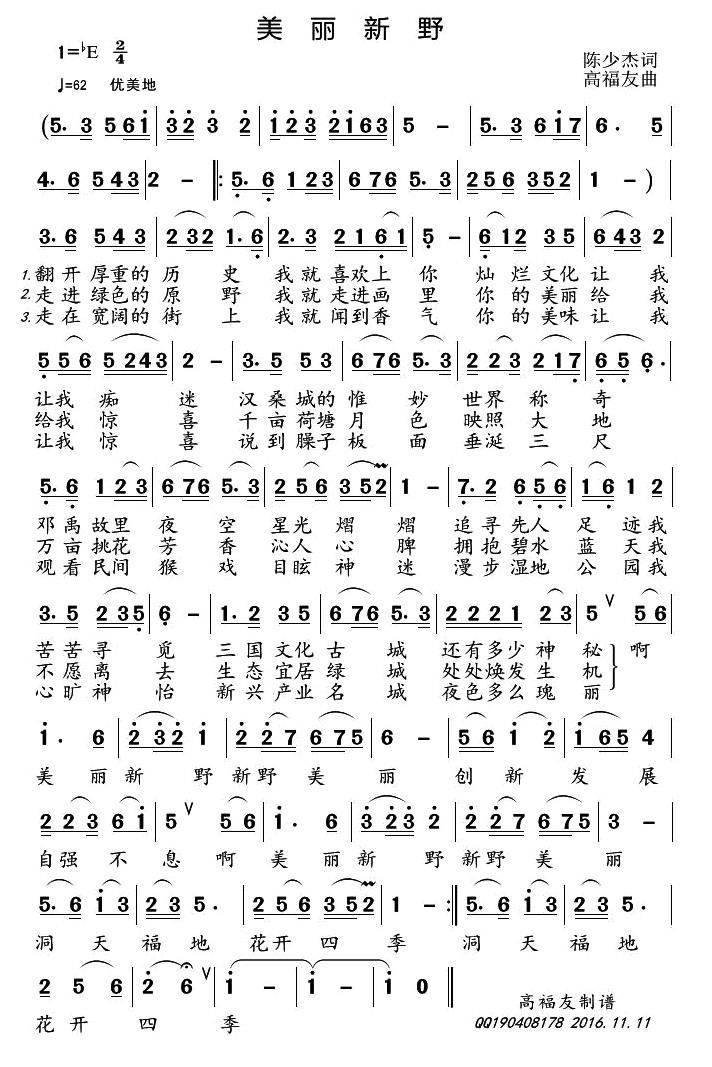 美 丽 新 野
1=♭E 2/4
陈少杰词
♩=62 优美地
高福友曲
(5. 3 5 6 1 | 3 2 3 2 | 1 2 3 2 1 6 3 | 5 - | 5. 3 6 1 7 | 6. 5
4. 6 5 4 3 | 2 - ‖: 5. 6 1 2 3 | 6 7 6 5. 3 | 2 5 6 3 5 2 | 1 - )
3. 6 5 4 3 | 2 3 2 1. 6 | 2. 3 2 1 6 1 | 5 - | 6 1 2 3 5 | 6 4 3 2
1. 翻开厚重的 历 史 我就喜欢上 你 灿烂文化让 我
2. 走进绿色的 原 野 我就走进画 里 你的美丽给 我
3. 走在宽阔的 街 上 我就闻到香 气 你的美味让 我
5 5 6 5 2 4 3 | 2 - | 3. 5 5 3 | 6 7 6 5. 3 | 2 2 3 2 1 7 | 6 5 6.
让我 痴 迷 汉桑城的 惟 妙 世界 称 奇
给我 惊 喜 千亩荷塘 月 色 映照 大 地
让我 惊 喜 说到臊子 板 面 垂涎 三 尺
5. 6 1 2 3 | 6 7 6 5. 3 | 2 5 6 3 5 2 | 1 - | 7. 2 6 5 6 | 1 6 1 2
邓禹故里 夜 空 星光 熠 熠 追寻先人 足 迹我
万亩挑花 芳 香 沁人 心 脾 拥抱碧水 蓝 天我
观看民间 猴 戏 目眩 神 迷 漫步湿地 公 园我
3. 5 2 3 5 | 6 - | 1. 2 3 5 | 6 7 6 5. 3 | 2 2 2 1 2 3 | 5 ∨ 5 6
苦苦寻 觅 三国文化 古 城 还有多少 神 秘 啊
不愿离 去 生态宜居 绿 城 处处焕发 生 机
心旷神 怡 新兴产业 名 城 夜色多么 瑰 丽
1. 6 | 2 3 2 1 | 2 2 7 6 7 5 | 6 - | 5 6 1 2 | 1 6 5 4
美 丽 新 野 新野 美 丽 创 新 发 展
2 2 3 6 1 | 5 ∨ 5 6 | 1. 6 | 3 2 3 2 | 2 2 7 6 7 5 | 3 -
自强 不 息 啊 美 丽 新 野 新野 美 丽
5. 6 1 3 | 2 3 5. | 2 5 6 3 5 2 | 1 - :‖ 5. 6 1 3 | 2 3 5.
洞 天 福 地 花开 四 季 洞 天 福 地
2 5 6 | 2 6 ∨ | 1 - | 1 - | 1 0 ‖
花开 四 季
高福友制谱
QQ190408178 2016.11.11